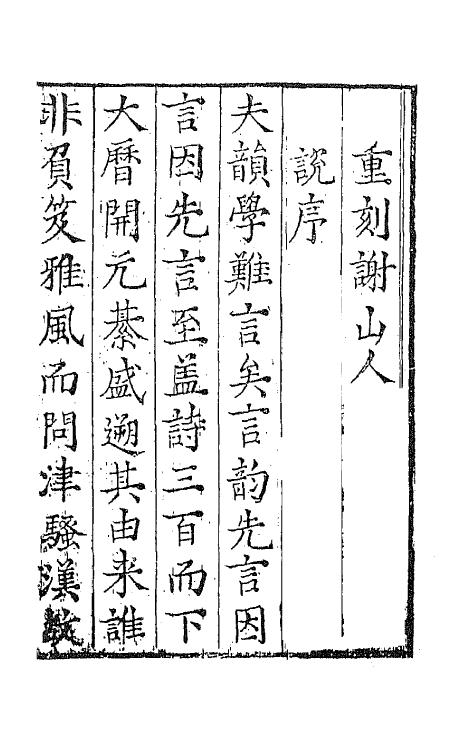 重刻謝山人
說序
夫韻學難言矣言韵先言因
言因先言至盖詩三百而下
大曆開元綦盛遡其由来誰
非負笈雅風而問津騷漢